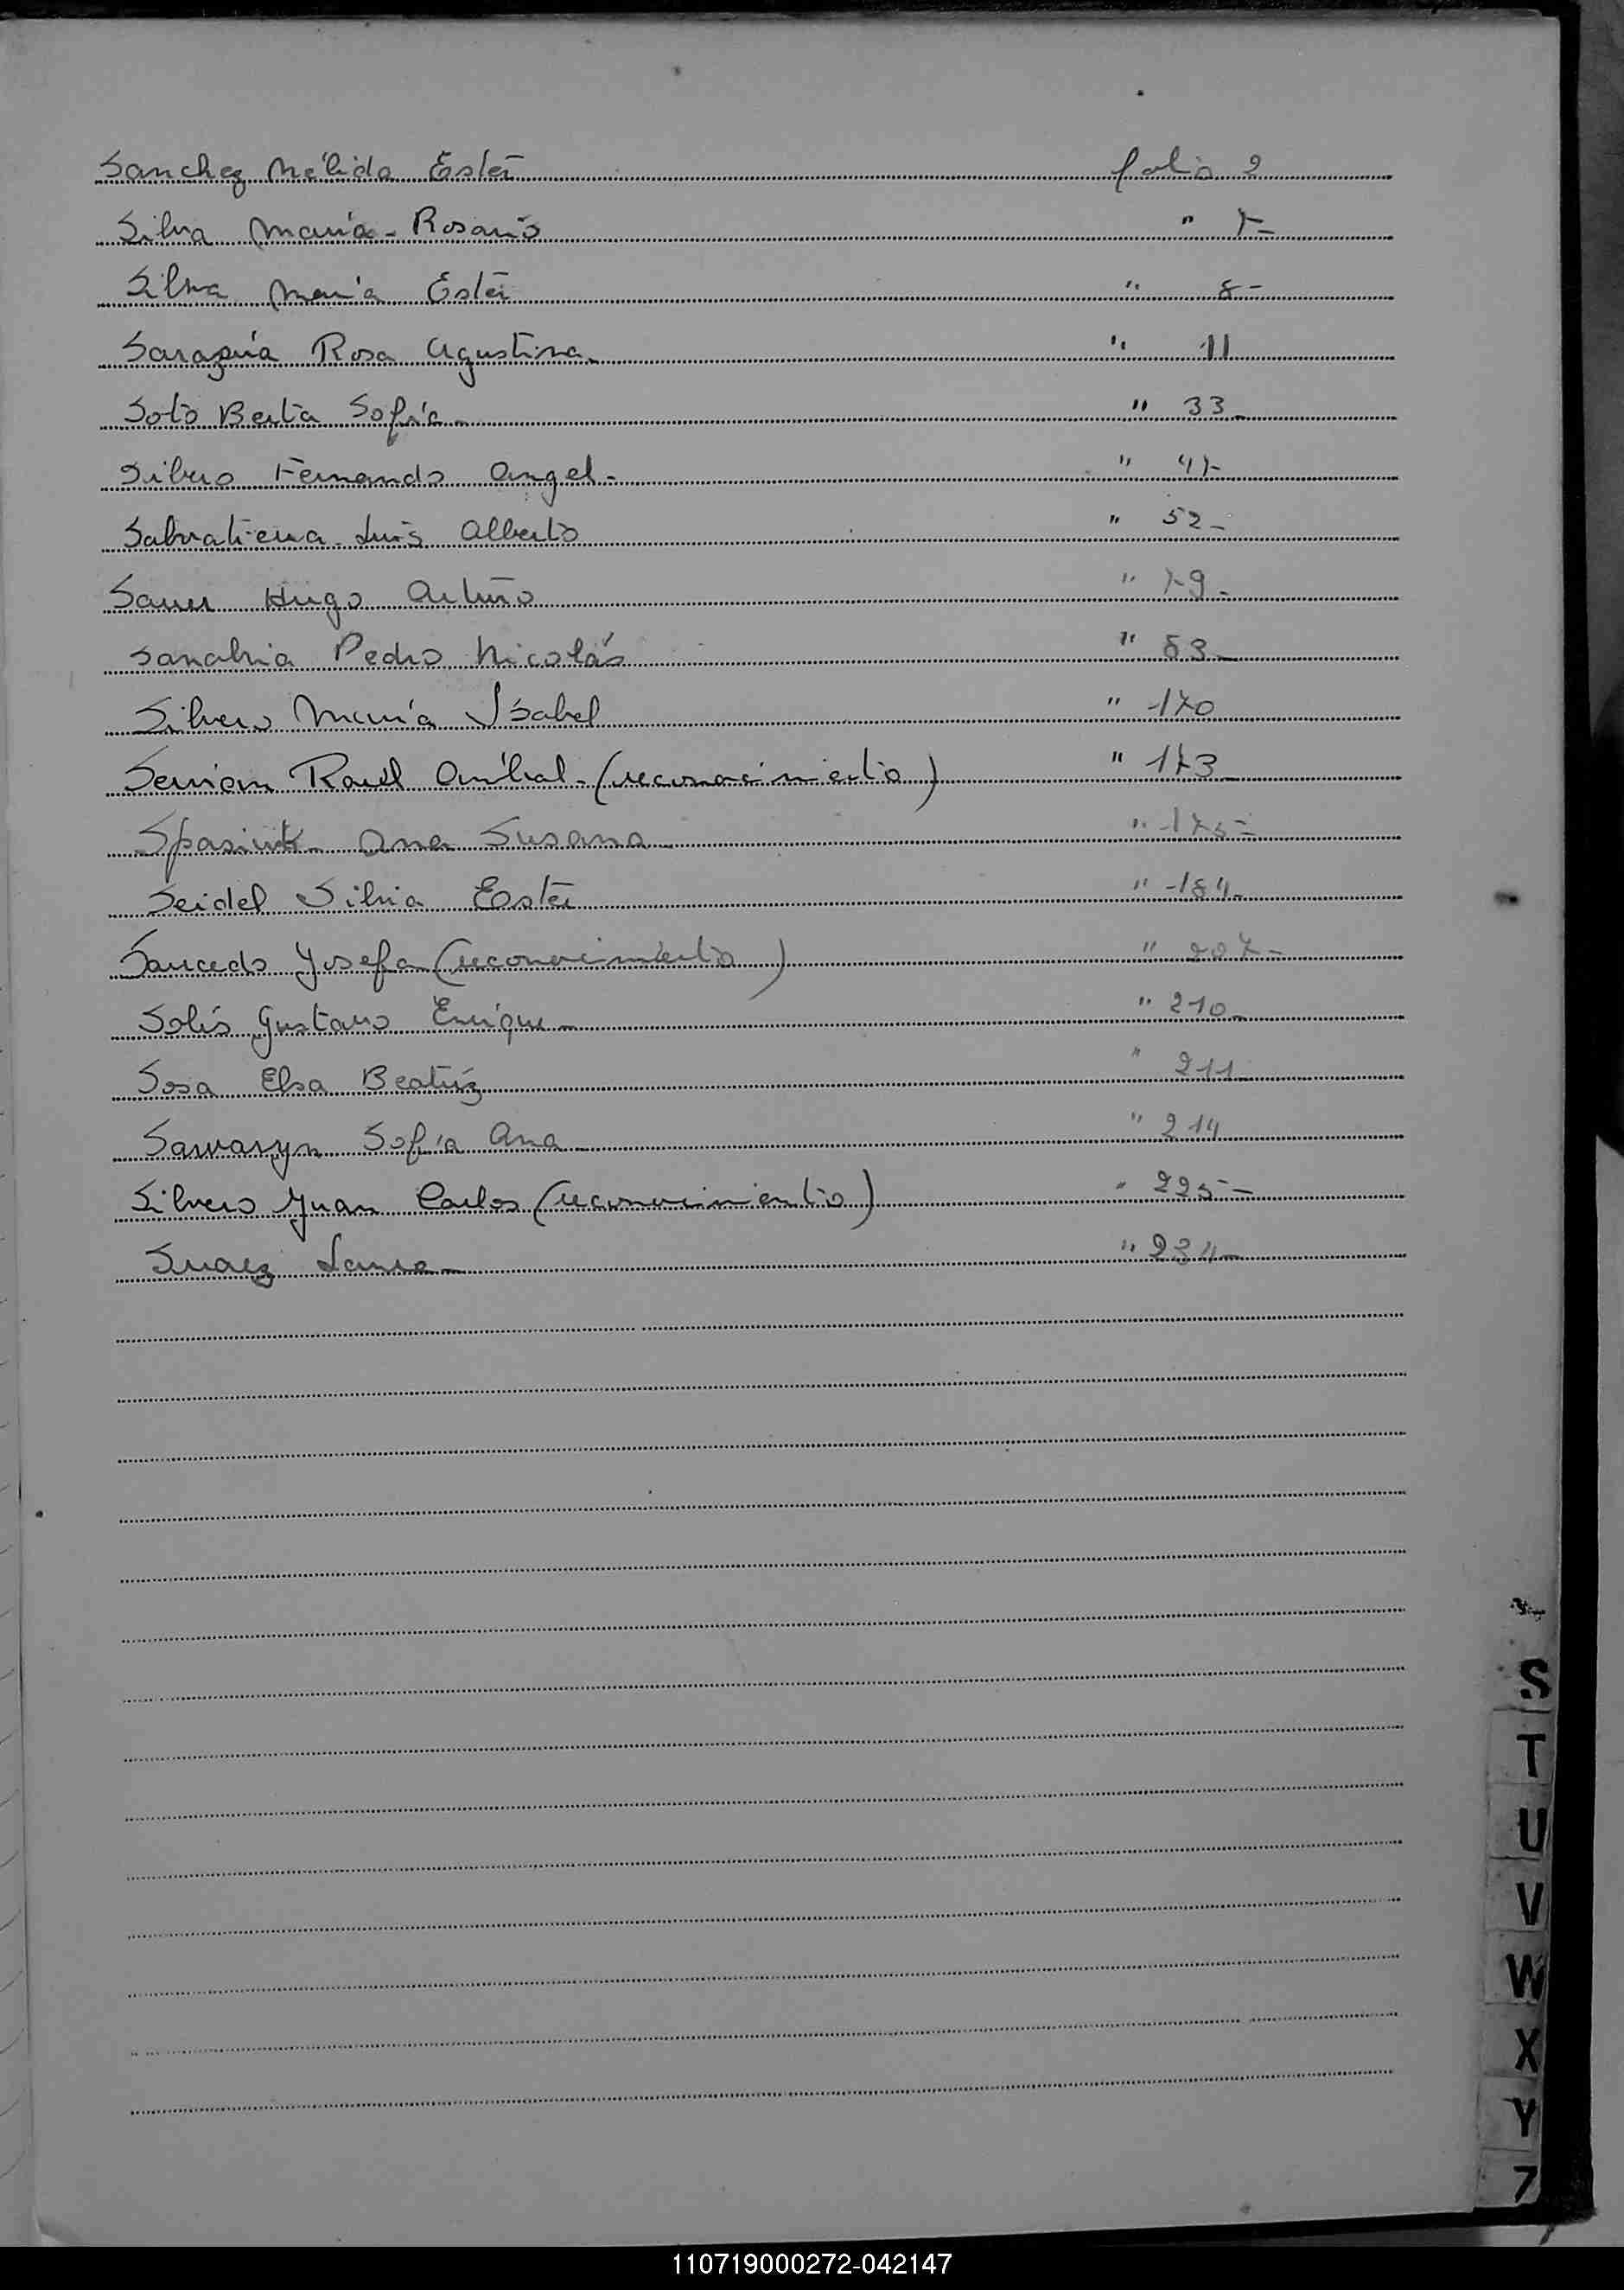 Sanchez Nélida Ester folio 2
Silva María - Rosario " 7-
Silva María Ester " 8-
Saragüa Rosa Agustina- " 11
Soto Berta Sofía- " 33-
Silvero Fernando Angel- " 47-
Salvatierra Luis Alberto " 52-
Sauer Hugo Arturo " 79-
Sanabria Pedro Nicolás " 83-
Silvero María Isabel " 170
Serviam Raúl Anibal-(reconocimiento) " 173-
Spasiuk- Ana Susana- " 175-
Seidel Silvia Ester " 184-
Saucedo Josefa (reconocimiento) " 207-
Solís Gustavo Enrique- " 210-
Sosa Elsa Beatríz " 211-
Sawaryn Sofía Ana- " 214
Silvero Juan Carlos (reconocimiento) " 225-
Suarez Laura- " 234-
S
T
U
V
W
X
Y
Z
110719000272-042147